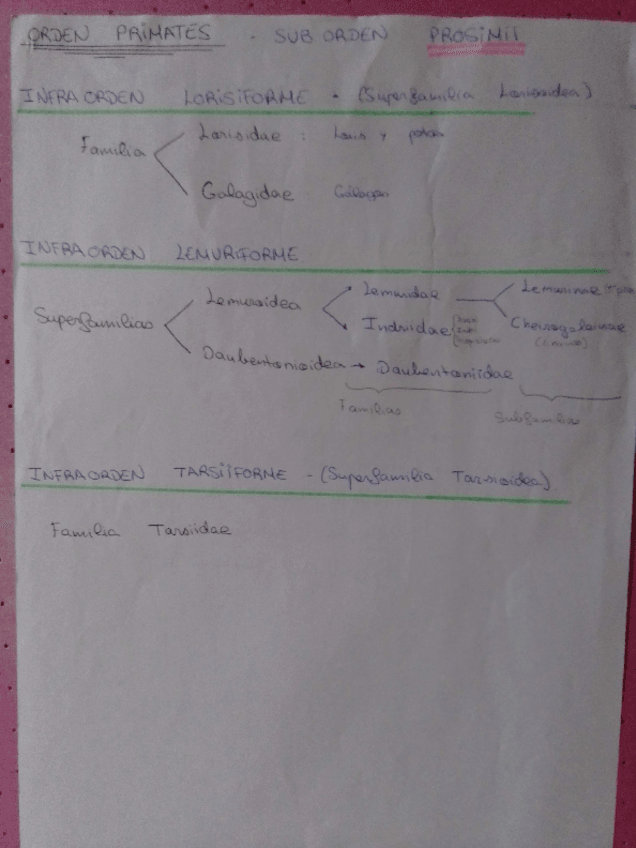 ORDEN PRIMATES . SUB ORDEN PROSIMII
INFRAORDEN LORISIFORME - (Superfamilia Lorisoidea)
Familia
Lorisidae : Loris y potos
Galagidae Gálagos
INFRAORDEN LEMURIFORME
Superfamilias
Lemuroidea
Lemuridae
Lemurinae
Indriidae
Cheirogaleinae
Daubentonioidea → Daubentoniidae
Familias
Subfamilias
INFRAORDEN TARSIIFORME - (Superfamilia Tarsioidea)
Familia Tarsiidae